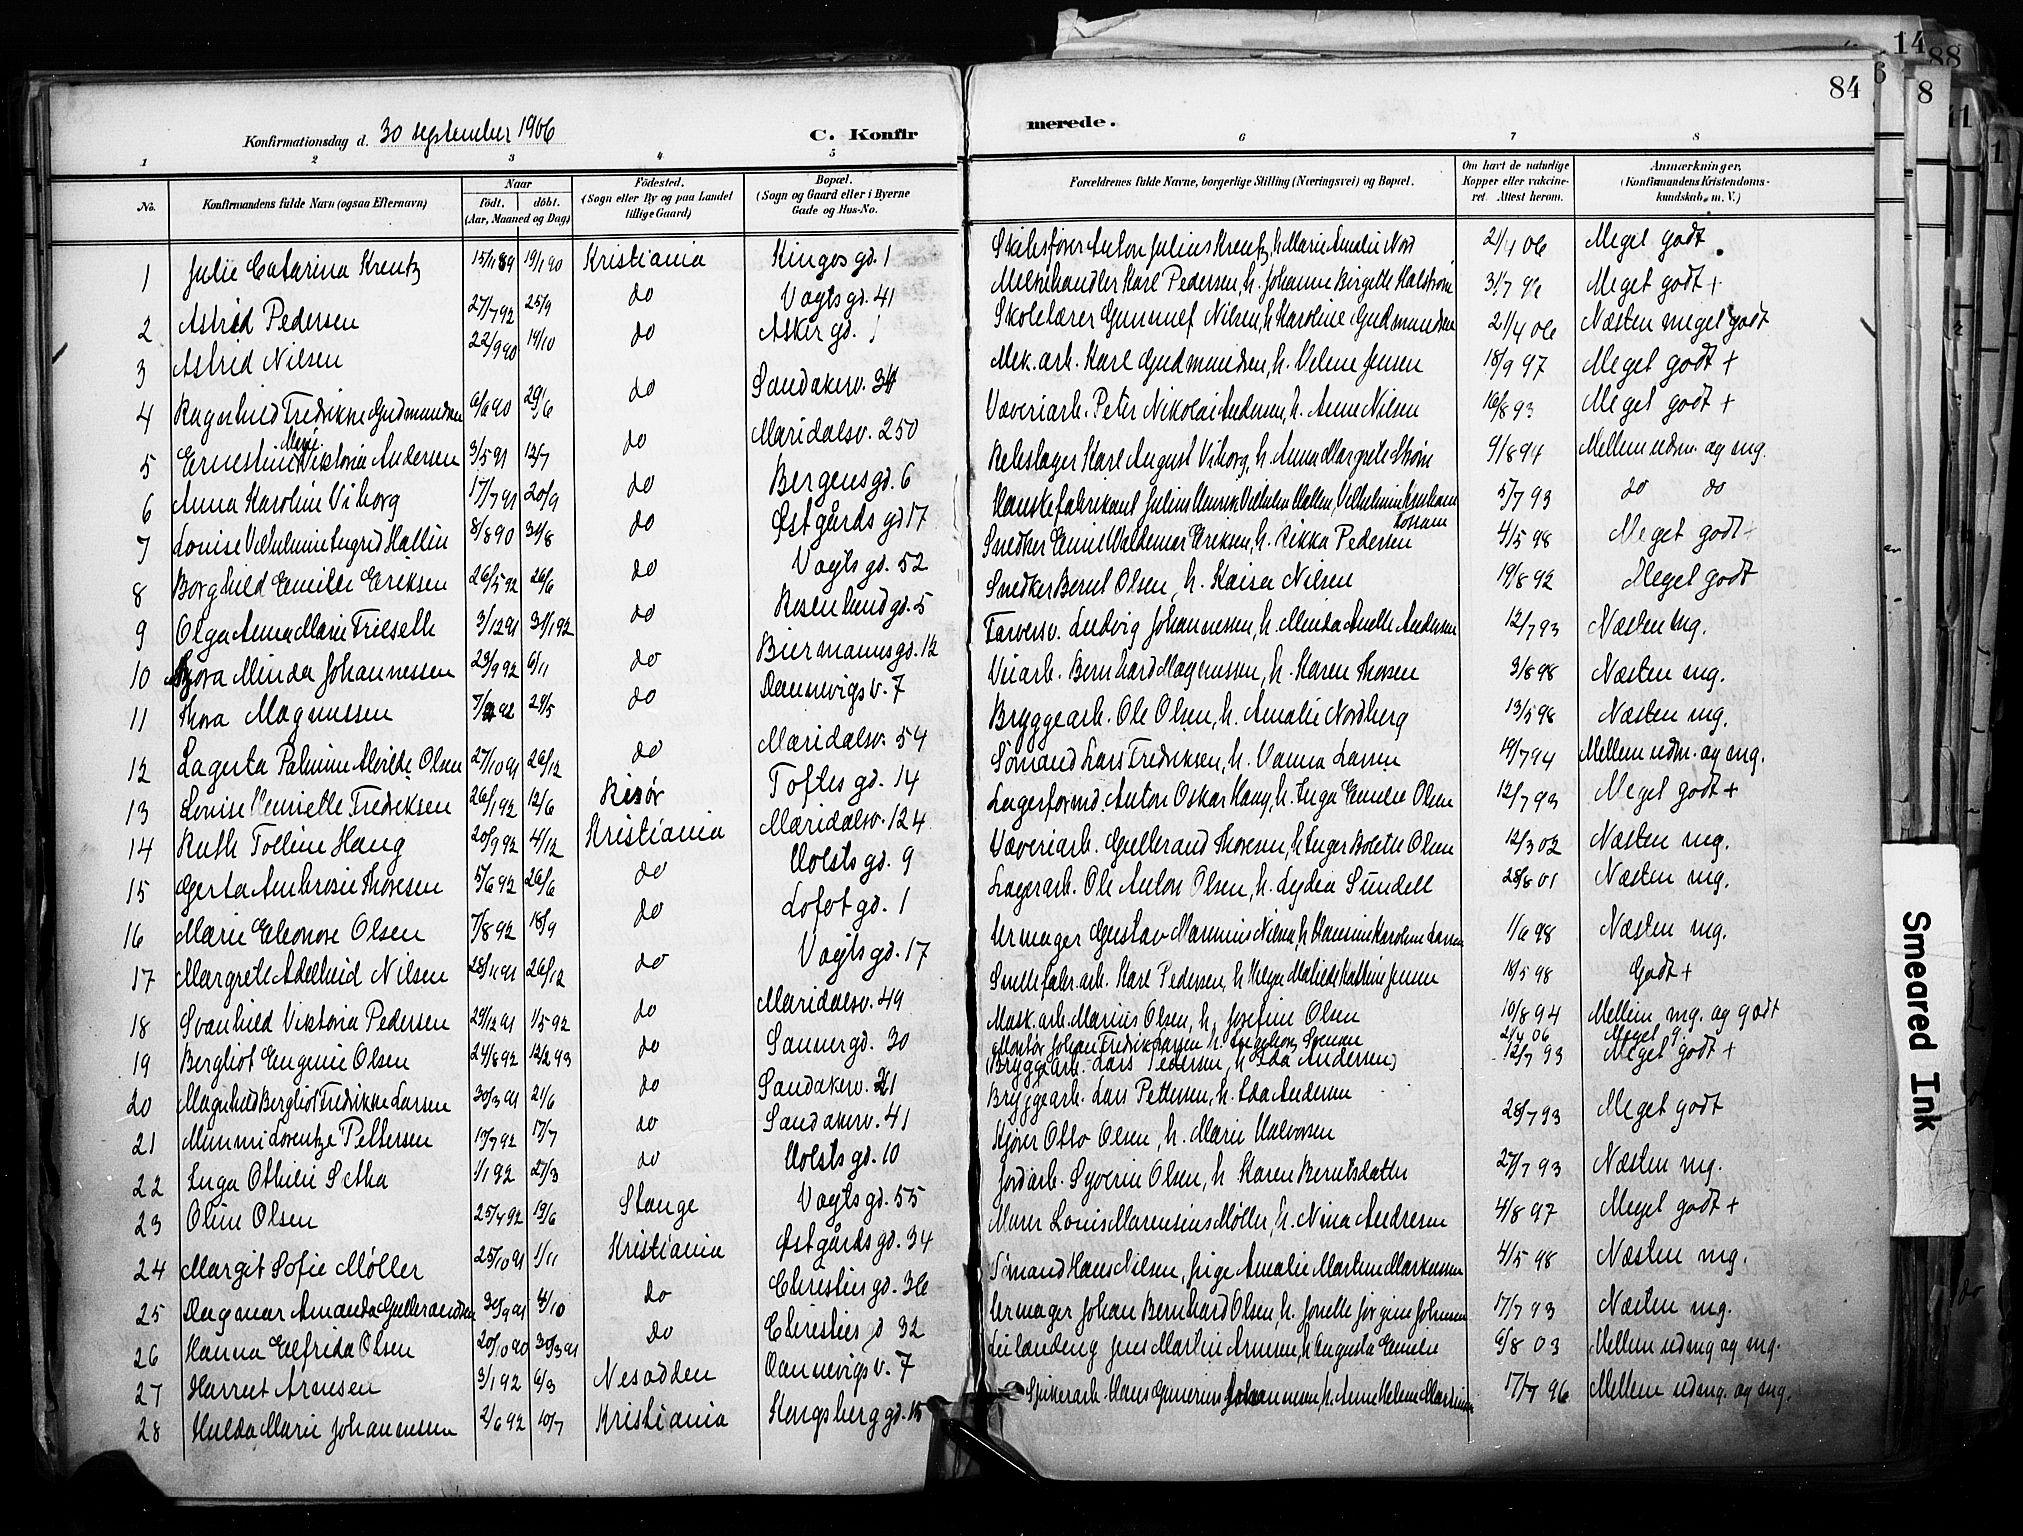 14
88
6
84
8
11
1
Konfirmationsdag d. 30 september 1906
C. Konfirmerede.
1 2 3 4 5 6 7 8
No.
Konfirmandens fulde Navn (ogsaa Efternavn)
Naar
født. døbt.
(Aar, Maaned og Dag)
Fødested.
(Sogn eller By og paa Landet
tillige Gaard)
Bopæl.
(Sogn og Gaard eller i Byerne
Gade og Hus-No.
Forældrenes fulde Navne, borgerlige Stilling (Næringsvei) og Bopæl.
Om havt de naturlige
Kopper eller vakcine-
ret. Attest herom.
Anmærkninger,
(Konfirmandens Kristendoms-
kundskab, m. V.)
1 Julie Catarina Kreutz 15/11 89 19/1 90 Kristiania Kingos gd. 1 Anton Julius Kreutz, h. Marie Amalie Nord 21/4 06 Meget godt
2 Astrid Pedersen 27/7 92 25/9 do Vogts gd. 41 Melkehandler Karl Pedersen, h. Johanne Birgitte Halstrøm 31/7 96 Meget godt +
3 Astrid Nilsen 22/9 90 14/10 do Asker gd. 1 Skolelærer Gunnuf Nilsen, h. Karoline Gudmundsen 21/4 06 Næsten meget godt
4 Ragnhild Fredrikke Gudmundsen 6/6 90 29/6 do Sandakerv. 34 Mek. arb. Karl Gudmundsen, h. Velene Jensen 18/9 97 Meget godt +
5 Ernestine Marie Viktoria Andersen 3/5 91 12/7 do Maridalsv. 250 Væveriarb. Peter Nikolai Andersen, h. Anne Nilsen 16/8 93 Meget godt +
6 Anna Karoline Viborg 17/7 91 20/9 do Bergens gd. 6 Rebslager Karl August Viborg, h. Anna Margrete Strøm 9/8 94 Mellem udm. og mg.
7 Louise Vilhelmine Ingrid Hallin 8/8 90 31/8 do Østgårds gd 17 Hanskefabrikant Julius Henrik Vilhelm Hallin, Vilhelmine 5/7 93 do do
8 Borghild Emilie Eriksen 26/5 92 26/6 do Vogts gd. 52 Snedker Emil Valdemar Eriksen, h. Rikka Pedersen 4/5 98 Meget godt +
9 Olga Anna Marie Frilseth 3/12 91 31/1 92 do Rosenlund gd. 5 Snedker Bernt Olsen, h. Kaisa Nilsen 19/8 92 Meget godt
10 Thora Minda Johannessen 23/9 92 6/11 do Biermanns gd. 12 Farversv. Ludvig Johannessen, h. Minda Anette Andersen 12/7 93 Næsten mg.
11 Thora Magnussen 7/4 92 29/5 do Dannevigs v. 7 Veiarb. Bernhard Magnussen, h. Karen Thorsen 3/8 98 Næsten mg.
12 Lagerta Palmine Alvilde Olsen 27/10 91 26/12 do Maridalsv. 54 Bryggearb. Ole Olsen, h. Amalie Nordberg 13/5 98 Næsten mg.
13 Louise Henriette Fredriksen 26/1 92 12/6 Risør Toftes gd. 14 Sømand Lars Fredriksen, h. Hanna Larsen 19/7 94 Mellem udm. og mg.
14 Ruth Tolline Haug 20/9 92 4/12 Kristiania Maridalsv. 124 Lagerformd. Anton Oskar Haug, h. Inga Emelie Olsen 12/7 93 Meget godt +
15 Gerta Ambrosie Thoresen 5/6 92 26/6 do Holsts gd. 9 Væveriarb. Gulbrand Thoresen, h. Inger Bolette Olsen 12/3 02 Næsten mg.
16 Marie Eleonore Olsen 7/8 92 18/9 do Lofot gd. 1 Lagerarb. Ole Anton Olsen, h. Lydia Sundell 28/8 01 Næsten mg.
17 Margrete Adelheid Nilsen 28/11 91 26/12 do Vogts gd. 17 Urmager Gustav Marinius Nilsen, h. Hansine Karoline Larsen 1/6 98 Næsten mg.
18 Svanhild Viktoria Pedersen 29/12 91 1/5 92 do Maridalsv. 49 Karl Pedersen, h. Helga Matilde Kathrine Jensen 18/5 98 Godt +
19 Bergliot Eugenie Olsen 24/8 92 12/2 93 do Sanner gd. 30 Mask. arb. Marius Olsen, h. Josefine Olsen 10/8 94 Mellem mg. og godt
20 Magnhild Bergliot Fredrikke Larsen 30/3 91 21/6 do Sandakerv. 21 Montør Johan Fredrik Larsen h. Ingeborg 21/4 06 Meget g.
(Bryggearb. Lars Pedersen, h. Ida Andersen) 12/7 93 Meget godt +
21 Mimmi Lorentze Pettersen 19/7 92 17/7 do Sandakerv. 41 Bryggearb. Lars Pettersen, h. Ida Andersen
22 Inga Othilie Setha 1/1 92 27/3 do Holsts gd. 10 Kjører Otto Olsen, h. Marie Halvorsen 28/7 93 Meget godt
23 Oline Olsen 25/4 92 19/6 Stange Vogts gd. 55 Jordarb. Syverin Olsen, h. Karen Berntsdatter 27/7 93 Næsten mg.
24 Margit Sofie Møller 25/10 91 1/11 Kristiania Østgårds gd. 34 Murer Louis Marensius Møller, h. Nina Andresen 4/8 97 Meget godt +
25 Dagmar Amanda Gulbrandsen 30/9 91 4/10 do Christies gd. 36 Sømand Hans Nilsen, pige Amalie Martine Markussen 4/5 98 Næsten mg.
26 Hanna Elfrida Olsen 20/10 90 30/3 91 do Christies d 32 Urmager Johan Bernhard Olsen h. Jonette Jørgine Johnsen 17/7 93 Næsten mg.
27 Harriet Arnesen 3/1 92 6/3 Nesodden Dannevigs v. 7 Jens Martin Arnesen, h. Augusta Emelie 6/8 03 Mellem udmg og mg.
28 Hulda Marie Johannessen 2/6 92 10/7 Kristiania Kongsberg gd. 15 Spikerarb. Hans Gunerius Johannessen, h. Anne Helene Martinsen 17/7 96 Mellem udmg. og mg.
Smeared Ink